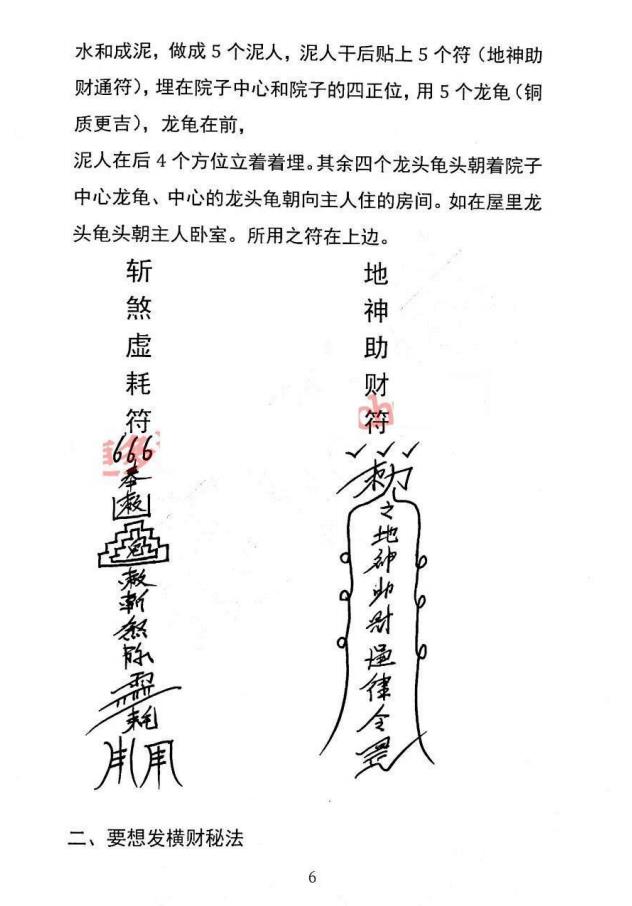 水和成泥，做成 5 个泥人，泥人干后贴上 5 个符（地神助
财通符），埋在院子中心和院子的四正位，用 5 个龙龟（铜
质更吉），龙龟在前，
泥人在后 4 个方位立着着埋。其余四个龙头龟头朝着院子
中心龙龟、中心的龙头龟朝向主人住的房间。如在屋里龙
头龟头朝主人卧室。所用之符在上边。
斩煞虚耗符
666
奉
敕
敕
斩
煞
除
耗
地神助财符
敕
之
地
神
助
财
通
律
令
罡
二、要想发横财秘法
6